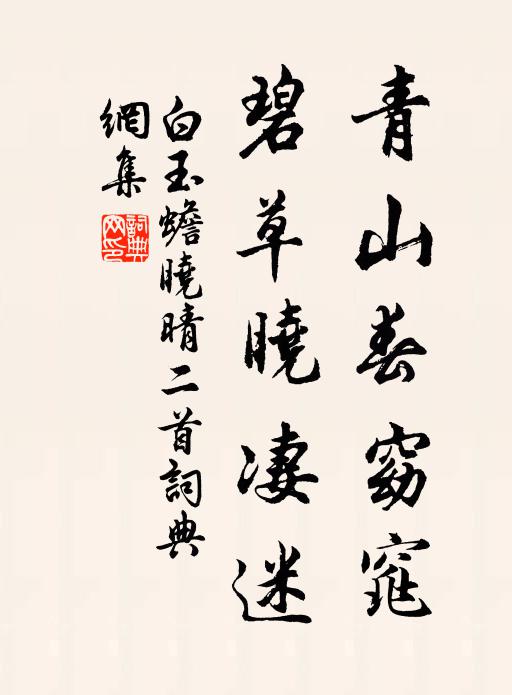 青山春窈窕
碧草曉凄迷
白玉蟾曉晴二首詞典
網集
詞典
网印